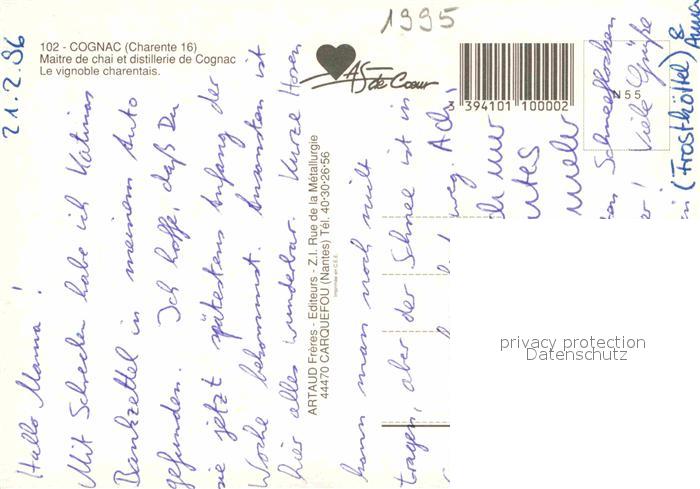 1995
21.2.96
102 - COGNAC (Charente 16)
Maitre de chai et distillerie de Cognac
Le vignoble charentais.
As de Cœur
3 394101 100002
N 55
ARTAUD Frères - Editeurs - Z.I. Rue de la Métallurgie
44470 CARQUEFOU (Nantes) Tél. 40-30-26-56
Hallo Mama!
Mit Schrecken habe ich Katinas
Bankzettel in meinem Auto
gefunden. Ich hoffe, daß Du
sie jetzt spätestens Anfang der
Woche bekommst. Ansonsten ist
hier alles wunderbar. Kurze Hosen
kann man noch nicht
tragen, aber der Schnee ist in
weg. Ach,
nur
utes
mehr
Schneeflocken
! Viele Grüße
(Frostköttel) &
privacy protection
Datenschutz